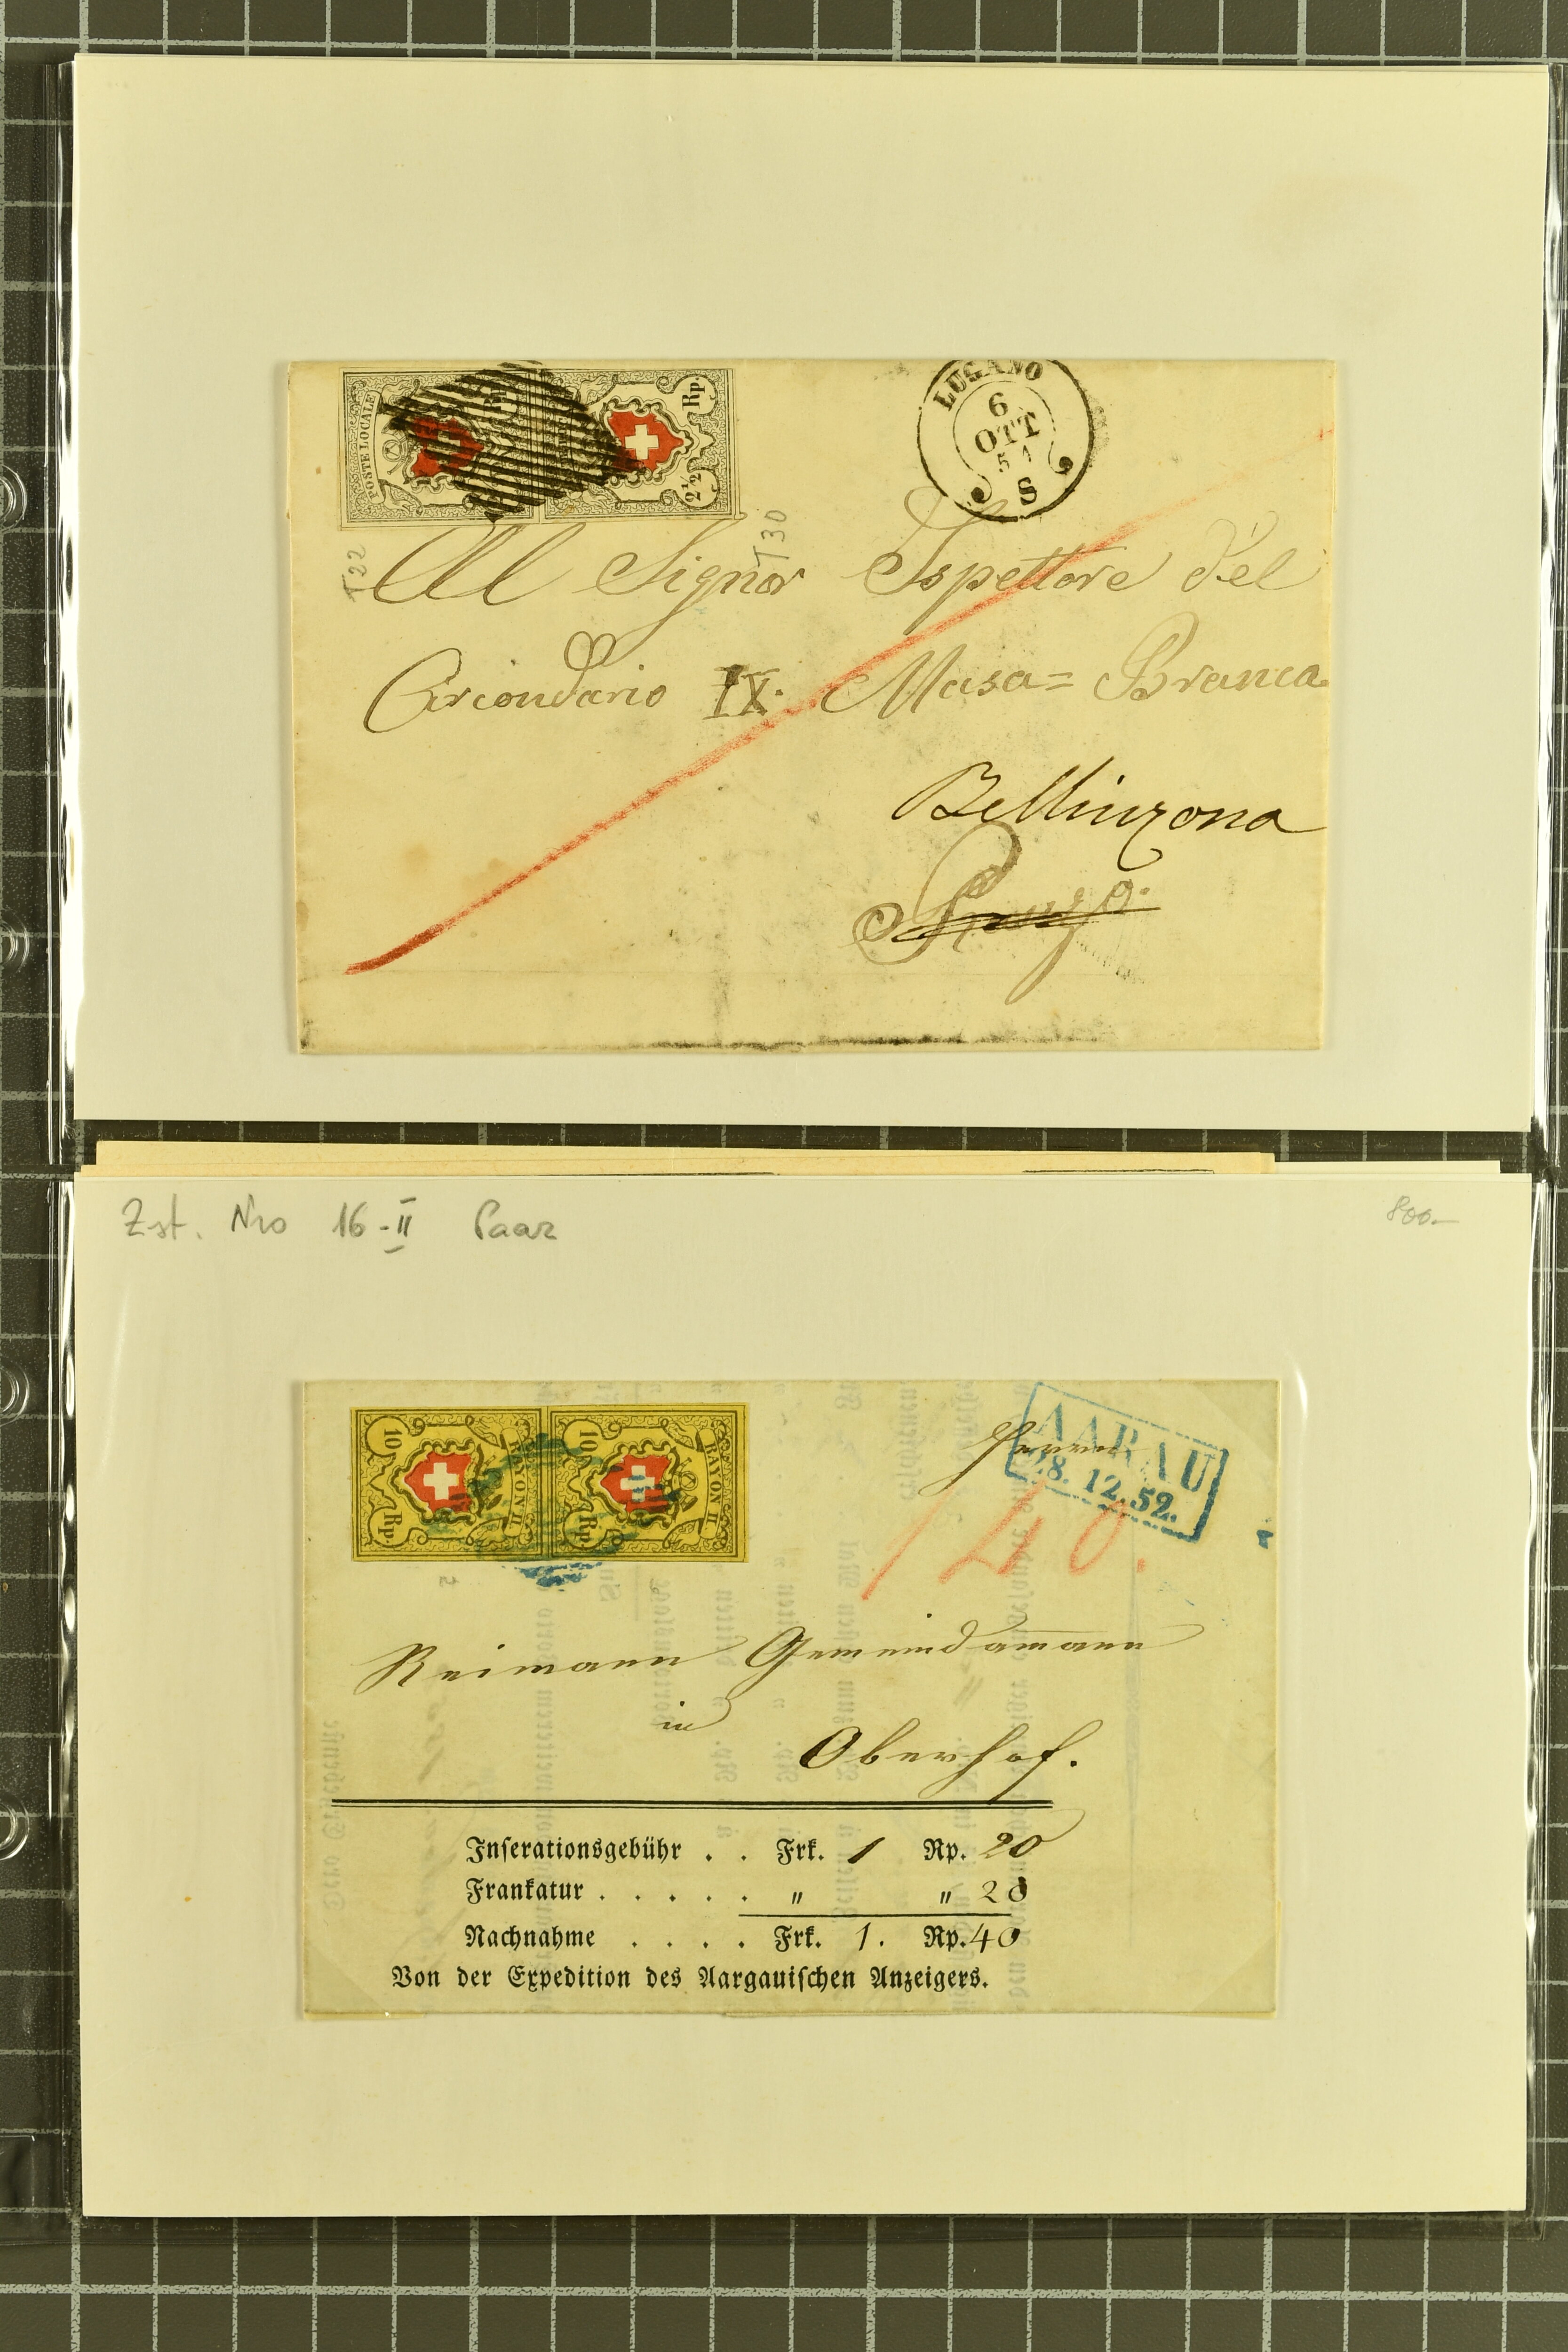 POSTE LOCALE
Rp.
2½
LUGANO
6
OTT
51
S
T22
T30
Al Signor Ispettore del
Circondario IX. Masa= Branca
Bellinzona
Zst. Nro 16-II Paar
800.-
10 Rp. RAYON II.
10 Rp. RAYON II.
AARAU
28. 12. 52.
Herrn
140.
Reimann Gemeindammann
in
Oberhof.
Inserationsgebühr . . Frk. 1 Rp. 20
Frankatur . . . . . " " 20
Nachnahme . . . . Frk. 1. Rp. 40
Von der Expedition des Aargauischen Anzeigers.